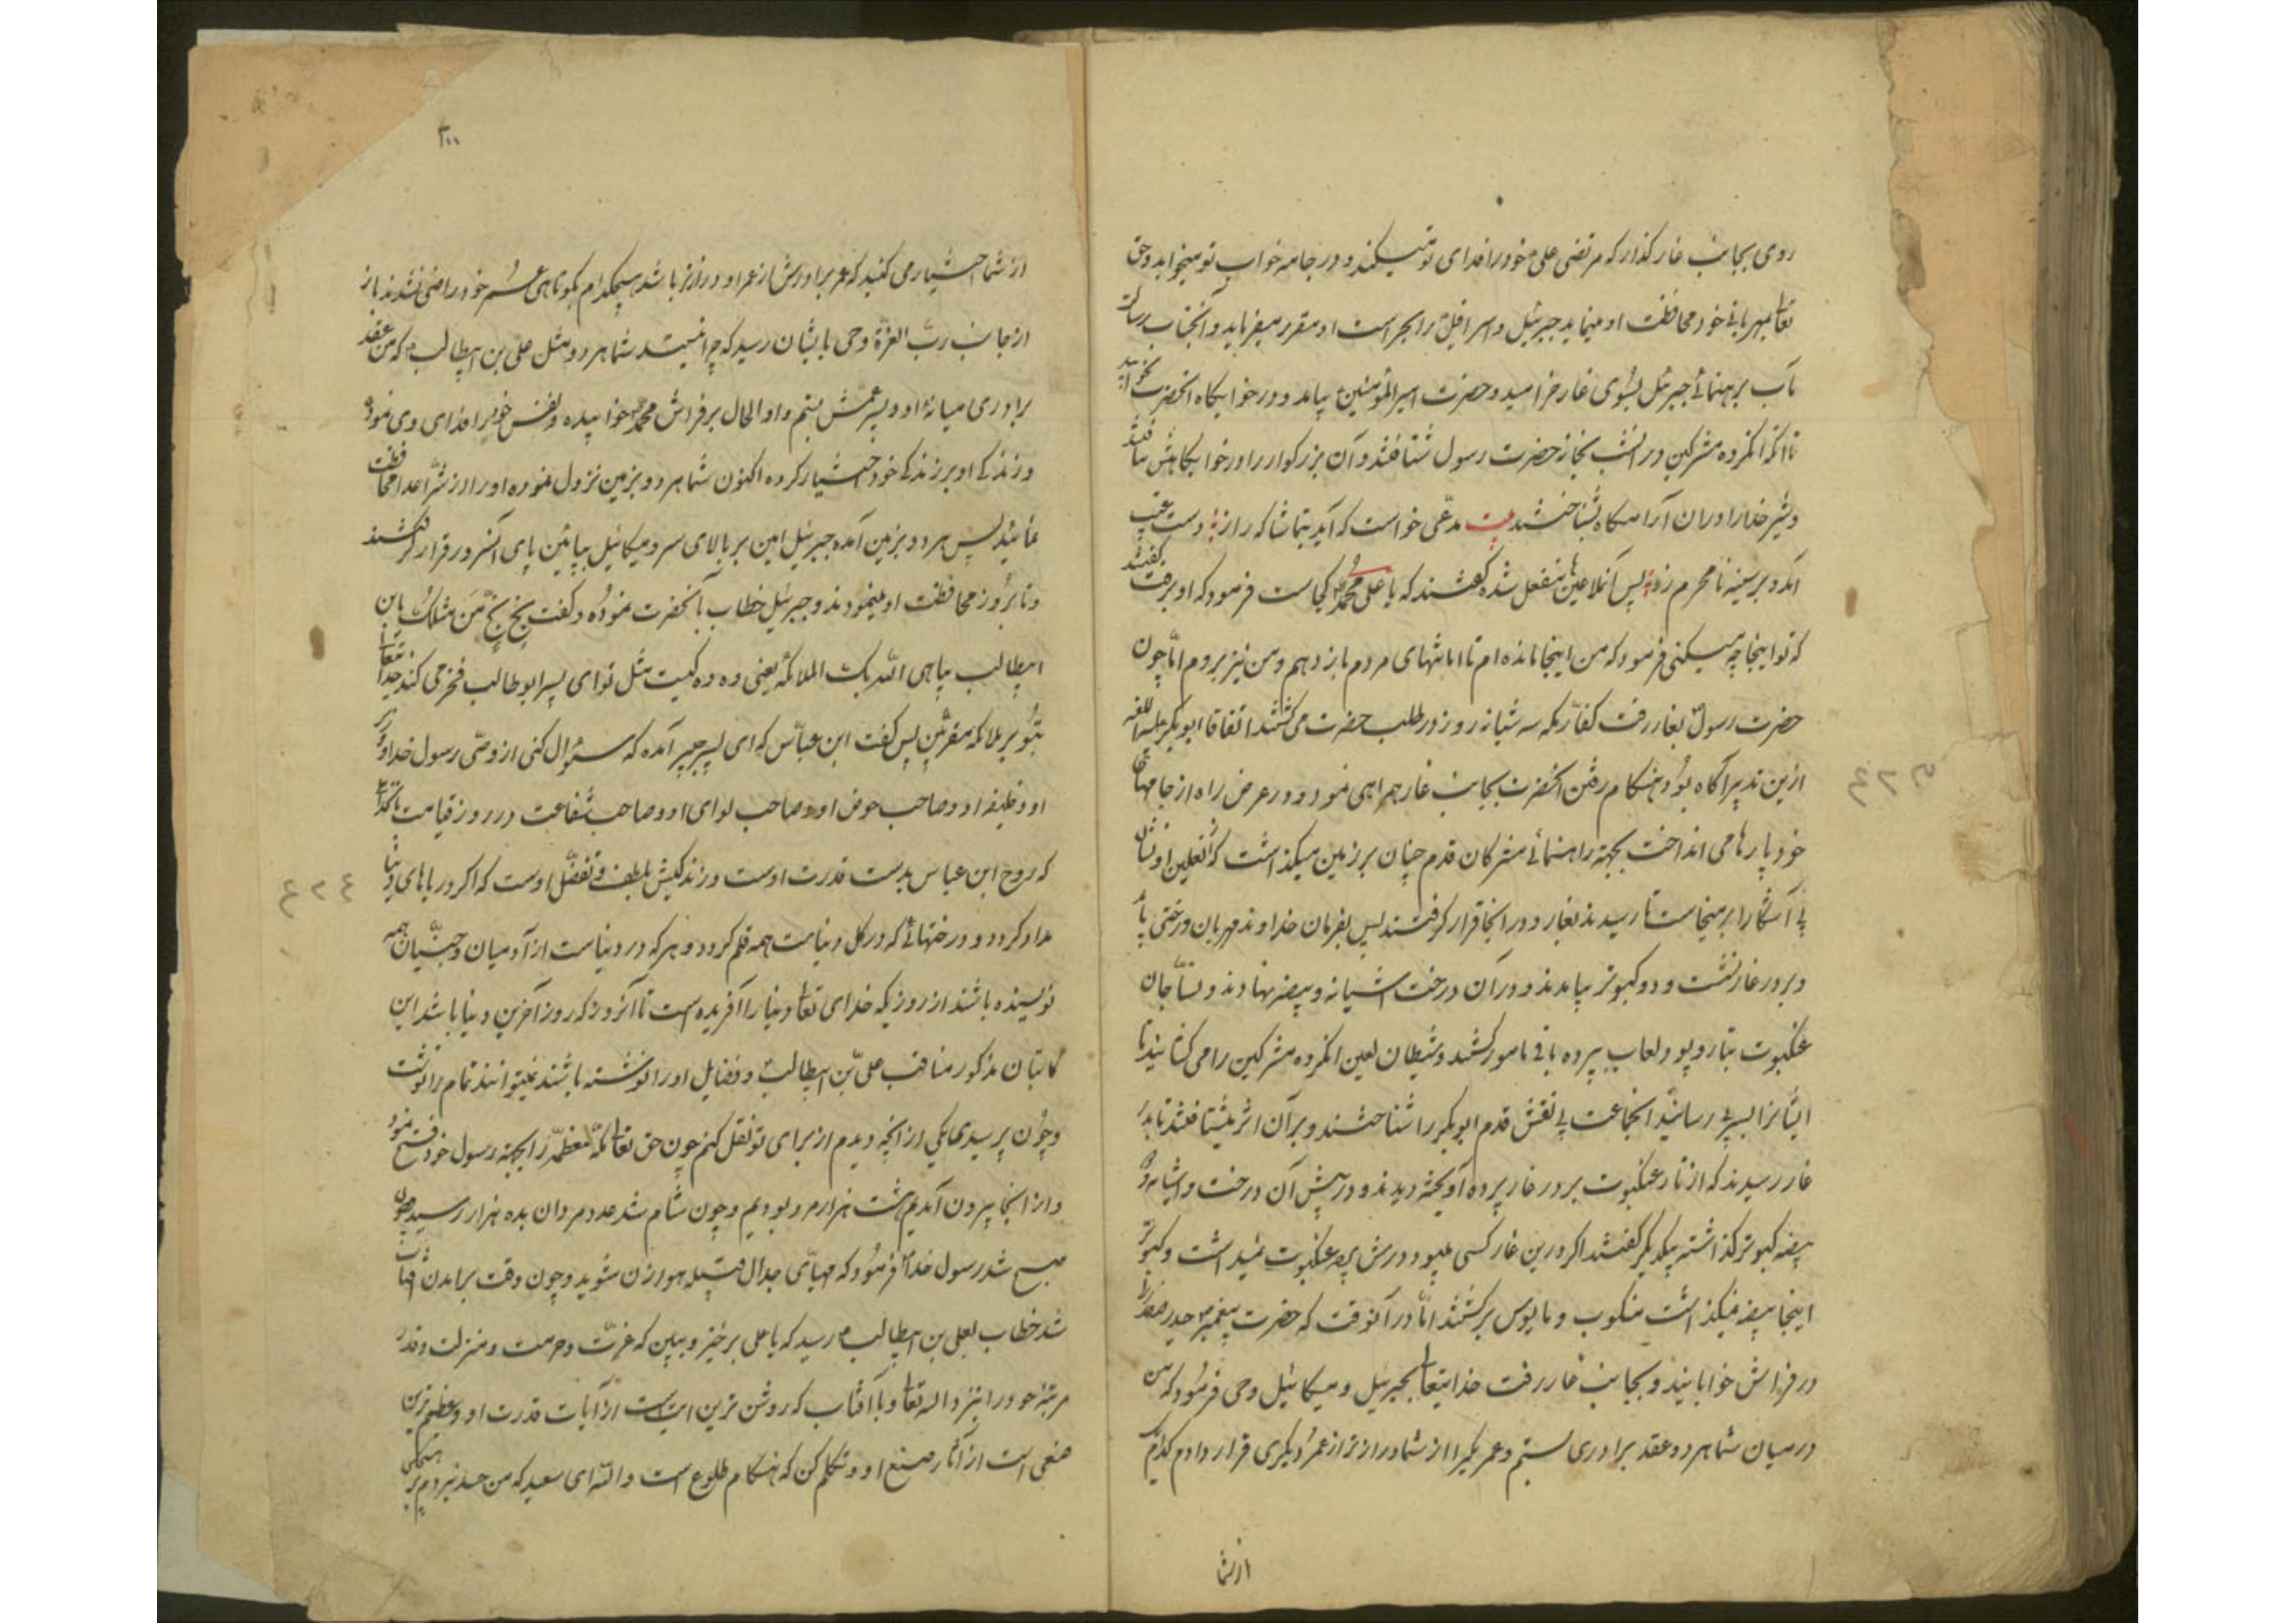 روی بجانب غار گذار که مرتضی علی خود را فدای تو میکند و در جامه خواب تو میخوابد و حق
تعالی بمهربانی خود محافظت او مینماید جبرئیل و اسرافیل را بحراست او مقرر میفرماید و آنجناب رسالت
مآب برهنمائی جبرئیل بسوی غار خرامید و حضرت امیرالمؤمنین بیامد و در خوابگاه آنحضرت بخوابید
تا آنکه آنگروه مشرکین در آنشب بخانه حضرت رسول شتافتند و آن بزرگوار را در خوابگاهش نیافتند
و شیر خدا را در آن آرامگاه بشناختند بیت مدعی خواست که آید بتماشاگه راز دست غیب
آمد و بر سینه نامحرم زد پس آنملاعین منفعل شده گفتند که یا علی محمد کجاست فرمود که او برفت گفتند
که تو اینجا چه میکنی فرمود که من اینجا مانده ام تا امانتهای مردم باز دهم و من نیز بروم اما چون
حضرت رسول بغار رفت کفار مکه سه شبانه روز در طلب حضرت می گشتند اتفاقا ابوبکر علیه اللعنه
ازین تدبیر آگاه بود و هنگام رفتن آنحضرت بجانب غار همراهی نمود و در عرض راه از جامهای
خود پارها می انداخت بجهة راهنمائی مشرکان قدم چنان بر زمین میگذاشت که نعلین او نشان
پی آشکارا بر میخاست تا رسیدند بغار و در آنجا قرار گرفتند پس بفرمان خداوند مهربان درختی
بر در غار نشت و دو کبوتر بیامدند و در آن درخت آشیانه و بیضه نهادند و نساجان
عنکبوت بتار و پود لعاب بپرده بافی مامور گشتند و شیطان لعین آنگروه مشرکین را می کشانید تا
ایشانرا بسر پی رسانید آنجماعت پی نقش قدم ابوبکر را شناختند و بر آن اثر میشتافتند تا بدر
غار رسیدند که از تار عنکبوت بر در غار پرده آویخته دیدند و در پیش آن درخت و آشیانه و
بیضه کبوتر گذاشته بیکدیگر گفتند اگر درین غار کسی میبود درش پرده عنکبوت نمیداشت و کبوتر
اینجا بیضه نمیگذاشت منکوب و مایوس برگشتند اما در آنوقت که حضرت پیغمبر حیدر صفدر را
در فراش خوابانید و بجانب غار رفت خدایتعالی بجبرئیل و میکائیل وحی فرمود که من
در میان شما هر دو عقد برادری بستم و عمر یکی را از شما درازتر از عمر دیگری قرار دادم کدام یک
از شما
۳۰۰
از شما اختیار می کنید که عمر برادرش از عمر او درازتر باشد هیچکدام بکوتاهی عمر خود راضی نشدند باز
از جانب رب العزة وحی بایشان رسید که چرا نیستید شما هر دو مثل علی بن ابیطالب که من عقد
برادری میانه او و پسر عمش بستم و او الحال بر فراش محمد خوابیده و نفس خود را فدای وی نموده
و زندگی او بر زندگی خود اختیار کرده اکنون شما هر دو بزمین نزول نموده او را از شر اعدا محافظت
نمائید پس هر دو بزمین آمده جبرئیل امین بر بالای سر و میکائیل بپائین پای آنسرور قرار گرفتند
و تا بروز محافظت او مینمودند و جبرئیل خطاب بآنحضرت نموده و گفت بخ بخ من مثلک یابن
ابیطالب یباهی الله بک الملائکة یعنی وه وه کیست مثل تو ای پسر ابو طالب فخر می کند خدایتعالی
بتو بر ملائکه مقربین پس گفت ابن عباس که ای پسر جبیر آمده که سؤال کنی از وصی رسول خدا و
او و خلیفه او و صاحب حوض او و صاحب لوای او و صاحب شفاعت در روز قیامت
که روح ابن عباس بدست قدرت اوست و زندگیش بلطف و تفضل اوست که اگر دریاهای دنیا
مداد گردد و درختهائی که در کل دنیاست همه قلم گردد و هر که در دنیاست از آدمیان و جنیان همه
نویسنده باشند از روزیکه خدای تعالی دنیا را آفریده است تا آنروز که روز آخرین دنیا باشد این
کاتبان مذکور مناقب علی بن ابیطالب و فضایل او را نوشته باشند نمیتوانند تمام را نوشت
و چون پرسیدی یکی از آنچه دیدم از برای تو نقل کنم چون حق تعالی مکه معظمه را بجهة رسول خود فتح نمود
و از آنجا بیرون آمدیم هشت هزار مرد بودیم و چون شام شد عدد مردان بده هزار رسید چون
صبح شد رسول خدا فرمود که مهیای جدال قبیله هوازن شوید و چون وقت برآمدن آفتاب
شد خطاب بعلی بن ابیطالب رسید که یا علی برخیز و ببین که عزت و حرمت و منزلت و قدر
مرتبه خود را نزد الله تعالی و با آفتاب که روشن ترین آیتی است از آیات قدرت او و عظیم ترین
صنعی است از آثار صنع او و تکلم کن که هنگام طلوع است والله ای سعید که من حسد نبردم بر هیچکس